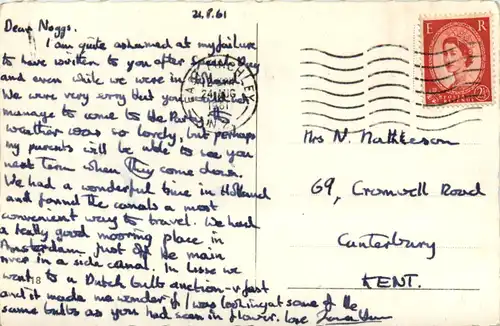 21.8.61
Dear Noggs.
I am quite ashamed at my failure
to have written to you after Speech Day
and even while we were in Holland.
We were very sorry that you could not
manage to come to the Party, the
weather was so lovely, but perhaps
my parents will be able to see you
next term when they come down.
We had a wonderful time in Holland
and found the canals a most
convenient way to travel. We had
a really good mooring place in
Amsterdam just off the main
river in a side canal. In Lisse we
went to a Dutch bulb auction - v fast
and it made me wonder if I was looking at some of the
same bulbs as you had seen in flower. love
FINCHLEY
24 AUG
1961
N
E R
2½
Mrs N. Matheson
69, Cromwell Road
Canterbury
KENT.
18